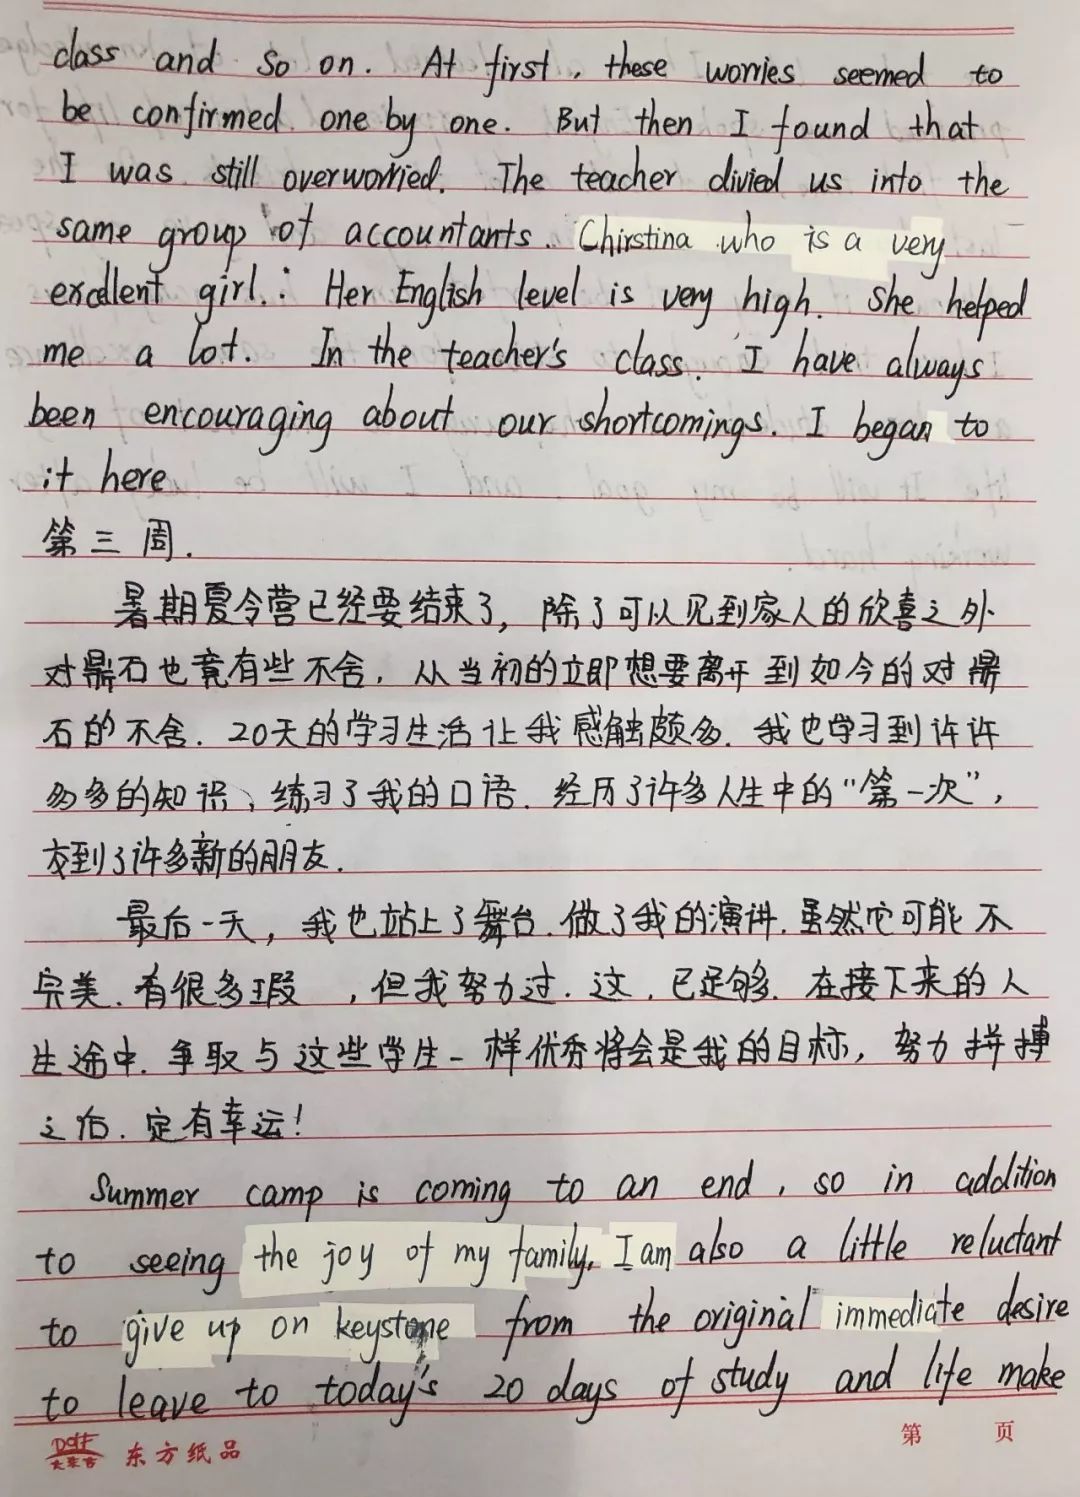 class and so on. At first, these worries seemed to
be confirmed one by one. But then I found that
I was still overworried. The teacher divied us into the
same group of accountants. Chirstina who is a very
excellent girl. Her English level is very high. She helped
me a lot. In the teacher's class. I have always
been encouraging about our shortcomings. I began to
it here
第三周.
暑期夏令营已经要结束了，除了可以见到家人的欣喜之外
对鼎石也竟有些不舍，从当初的立即想要离开到如今的对鼎
石的不舍. 20天的学习生活让我感触颇多. 我也学习到许许
多多的知识、练习了我的口语. 经历了许多人生中的“第一次”，
交到了许多新的朋友.
最后一天，我也站上了舞台. 做了我的演讲. 虽然它可能不
完美. 有很多瑕 ，但我努力过. 这. 已足够. 在接下来的人
生途中. 争取与这些学生一样优秀将会是我的目标，努力拼搏
之后. 定有幸运！
Summer camp is coming to an end, so in addition
to seeing the joy of my family, I am also a little reluctant
to give up on keystone from the original immediate desire
to leave to today's 20 days of study and life make
东方纸品
第 页